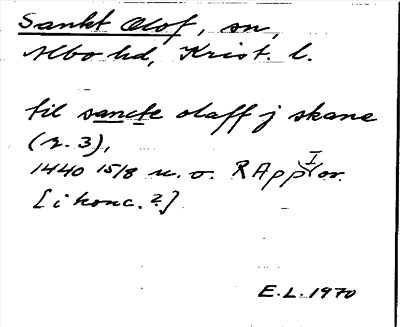 Sankt Olof, sn,
Albo hd, Krist. l.
til sancte olaff j skane
(r. 3),
1440 15/8 u. o. RAppr I or.
[i konc.?]
E.L. 1970